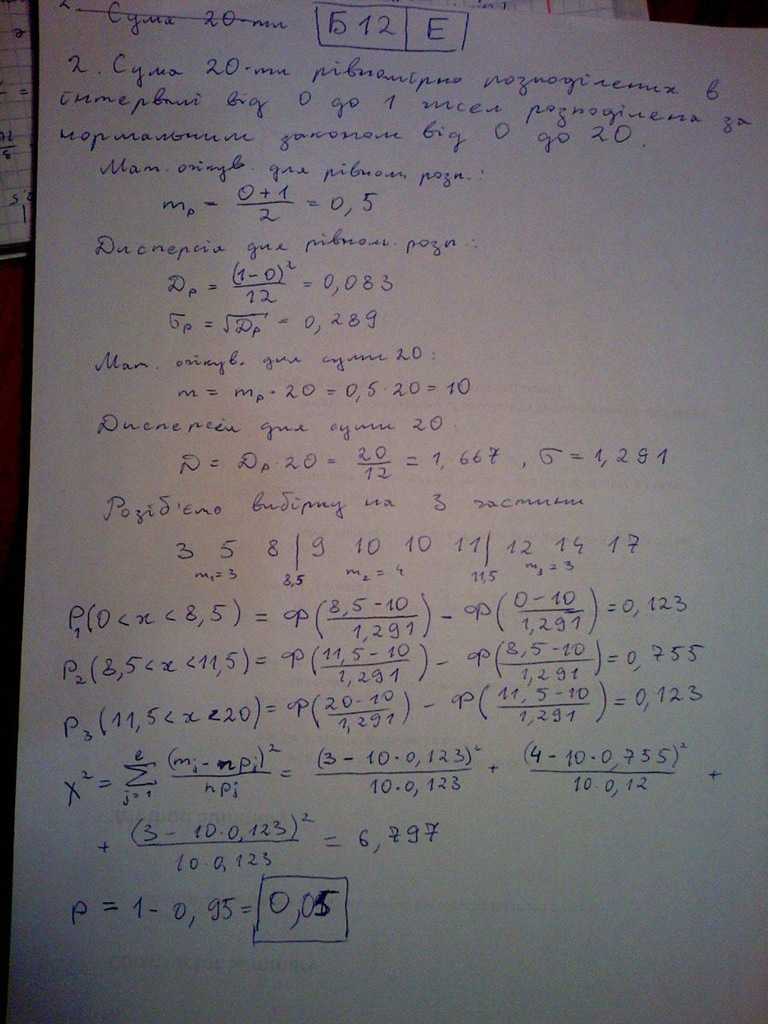 2. Сума 20-ти
Б 12 Е
2. Сума 20-ти рівномірно розподілених в
інтервалі від 0 до 1 чисел розподілена за
нормальним законом від 0 до 20.
Мат. очікув. для рівном. розп.:
m_p = (0+1)/2 = 0,5
Дисперсія для рівном. розп.:
D_p = (1-0)²/12 = 0,083
σ_p = √D_p = 0,289
Мат. очікув. для суми 20:
m = m_p · 20 = 0,5 · 20 = 10
Дисперсія для суми 20:
D = D_p · 20 = 20/12 = 1,667 , σ = 1,291
Розіб'ємо вибірку на 3 частини
3 5 8 | 9 10 10 11 | 12 14 17
m₁=3 8,5 m₂=4 11,5 m₃=3
P₁(0<x<8,5) = Ф((8,5-10)/1,291) - Ф((0-10)/1,291) = 0,123
P₂(8,5<x<11,5) = Ф((11,5-10)/1,291) - Ф((8,5-10)/1,291) = 0,755
P₃(11,5<x<20) = Ф((20-10)/1,291) - Ф((11,5-10)/1,291) = 0,123
χ² = Σ_{j=1}^{e} (m_j - np_j)²/np_j = (3-10·0,123)²/10·0,123 + (4-10·0,755)²/10·0,12 +
+ (3-10·0,123)²/10·0,123 = 6,797
p = 1 - 0,95 = 0,05